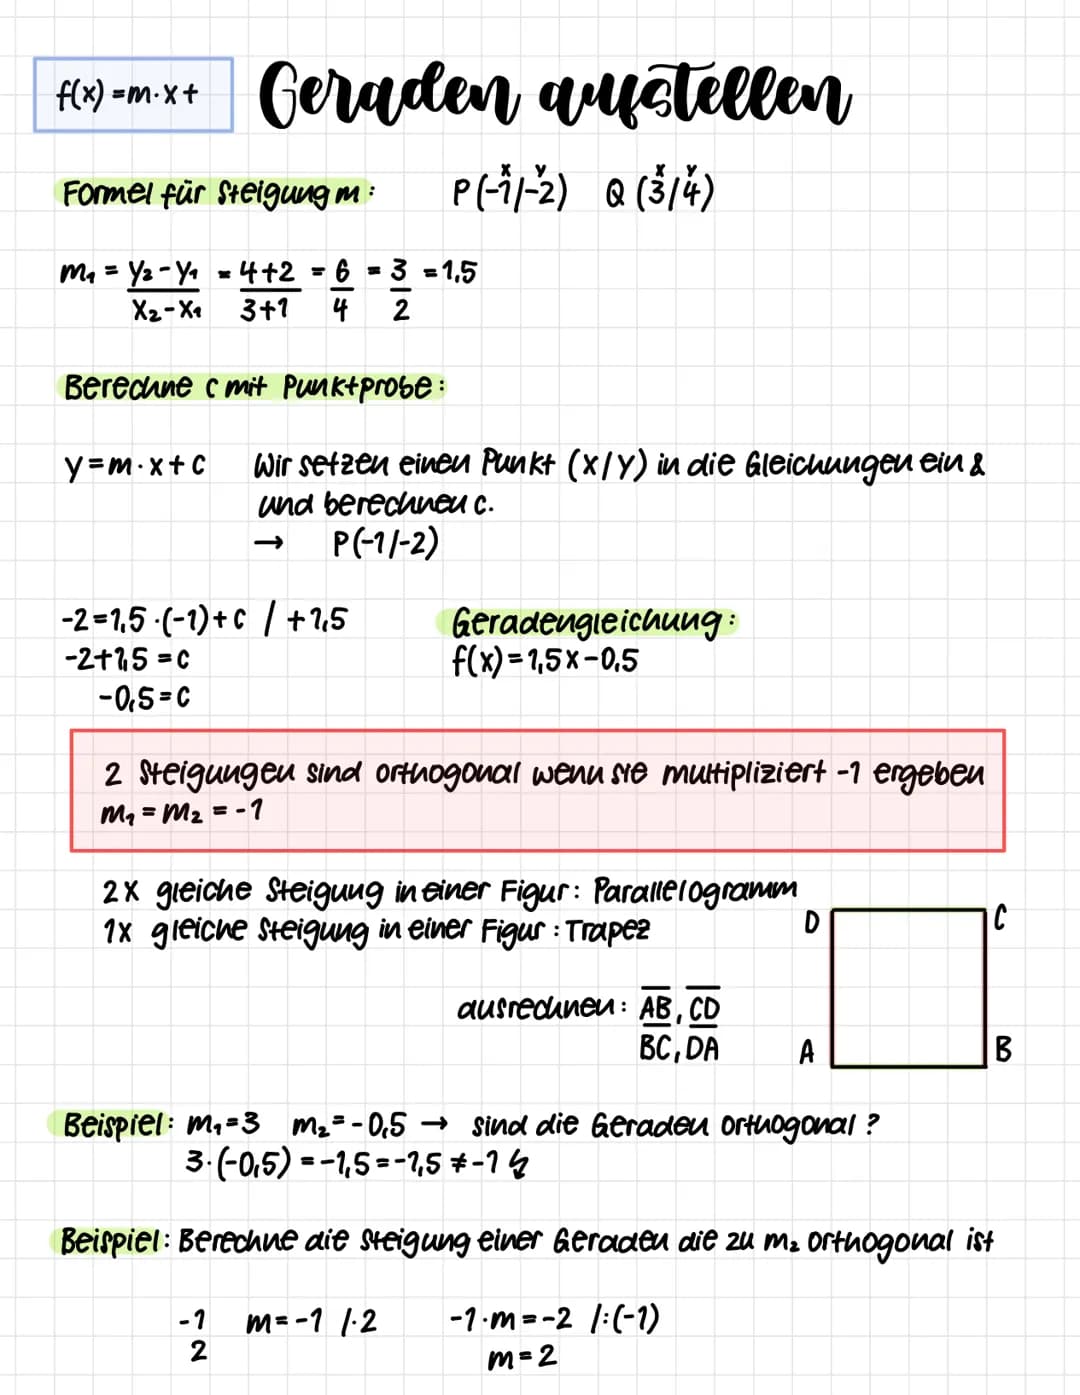 f(x) =m·x+
Geraden aufstellen
Formel für Steigung m: P(-1/-2) Q (3/4)
x y x y
m₁ = y₂-y₁ = 4+2 = 6 = 3 =1,5
x₂-x₁ 3+1 4 2
Berechne c mit Punktprobe:
y=m·x+c Wir setzen einen Punkt (x/y) in die Gleichungen ein &
und berechnen c.
→ P(-1/-2)
-2=1,5·(-1)+c / +1,5 Geradengleichung:
-2+1,5 =c f(x)=1,5x-0,5
-0,5=c
2 Steigungen sind orthogonal wenn sie multipliziert -1 ergeben
m₁=m₂ = -1
2x gleiche Steigung in einer Figur: Parallelogramm
1x gleiche Steigung in einer Figur: Trapez
D C
ausrechnen: AB, CD
BC, DA A B
Beispiel: m₁=3 m₂=-0,5 → sind die Geraden orthogonal?
3·(-0,5) =-1,5=-1,5≠-1 ↯
Beispiel: Berechne die Steigung einer Geraden die zu m₂ orthogonal ist
-1 m=-1 /·2 -1·m=-2 /:(-1)
2 m=2